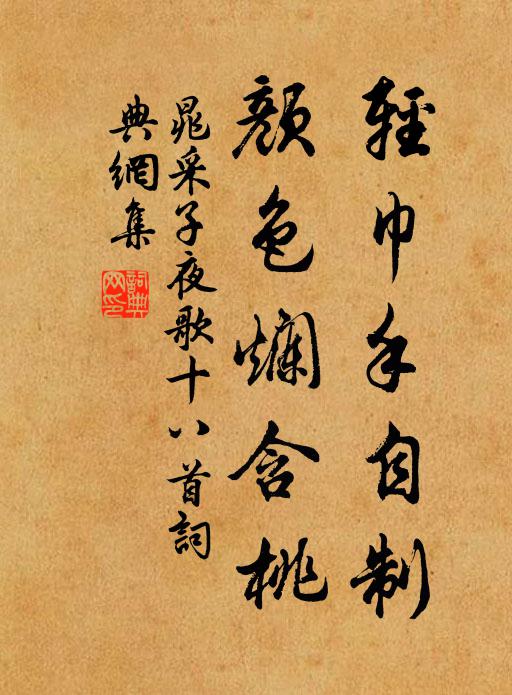 輕巾手自制
顏色爛含桃
晁采子夜歌十八首詞
典網集
詞典
网印